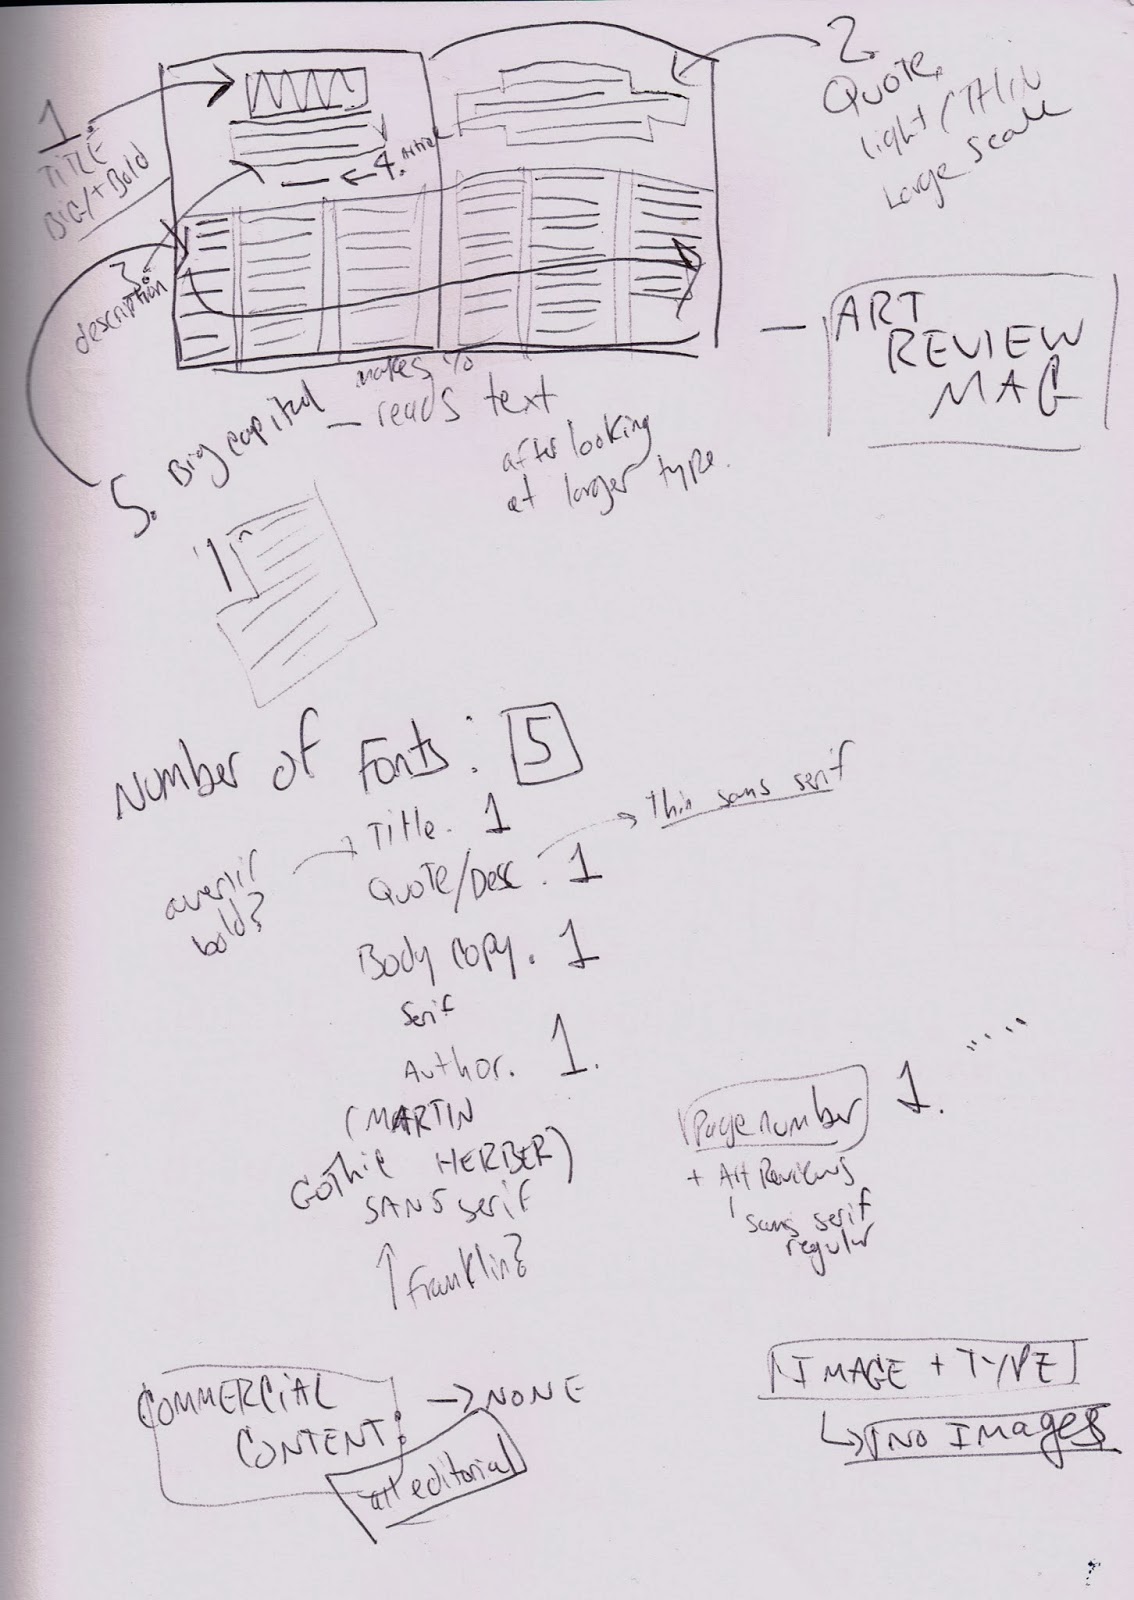 1.
TITLE
BIG/+Bold
2.
Quote.
light/THIN
Large Scale
4.
3.
description
ART
REVIEW
MAG
5. Big capital makes %
— reads text
after looking
at larger type.
Number of Fonts: 5
Title. 1
avenir
bold?
Quote/Desc. 1
Thin sans serif
Body copy. 1
Serif
Author. 1.
(MARTIN
HERBER)
Gothic
SANS serif
Franklin?
Page number 1.
+ Art Reviews
sans serif
regular
COMMERCIAL
CONTENT: → NONE
art editorial
IMAGE + TYPE
NO IMages